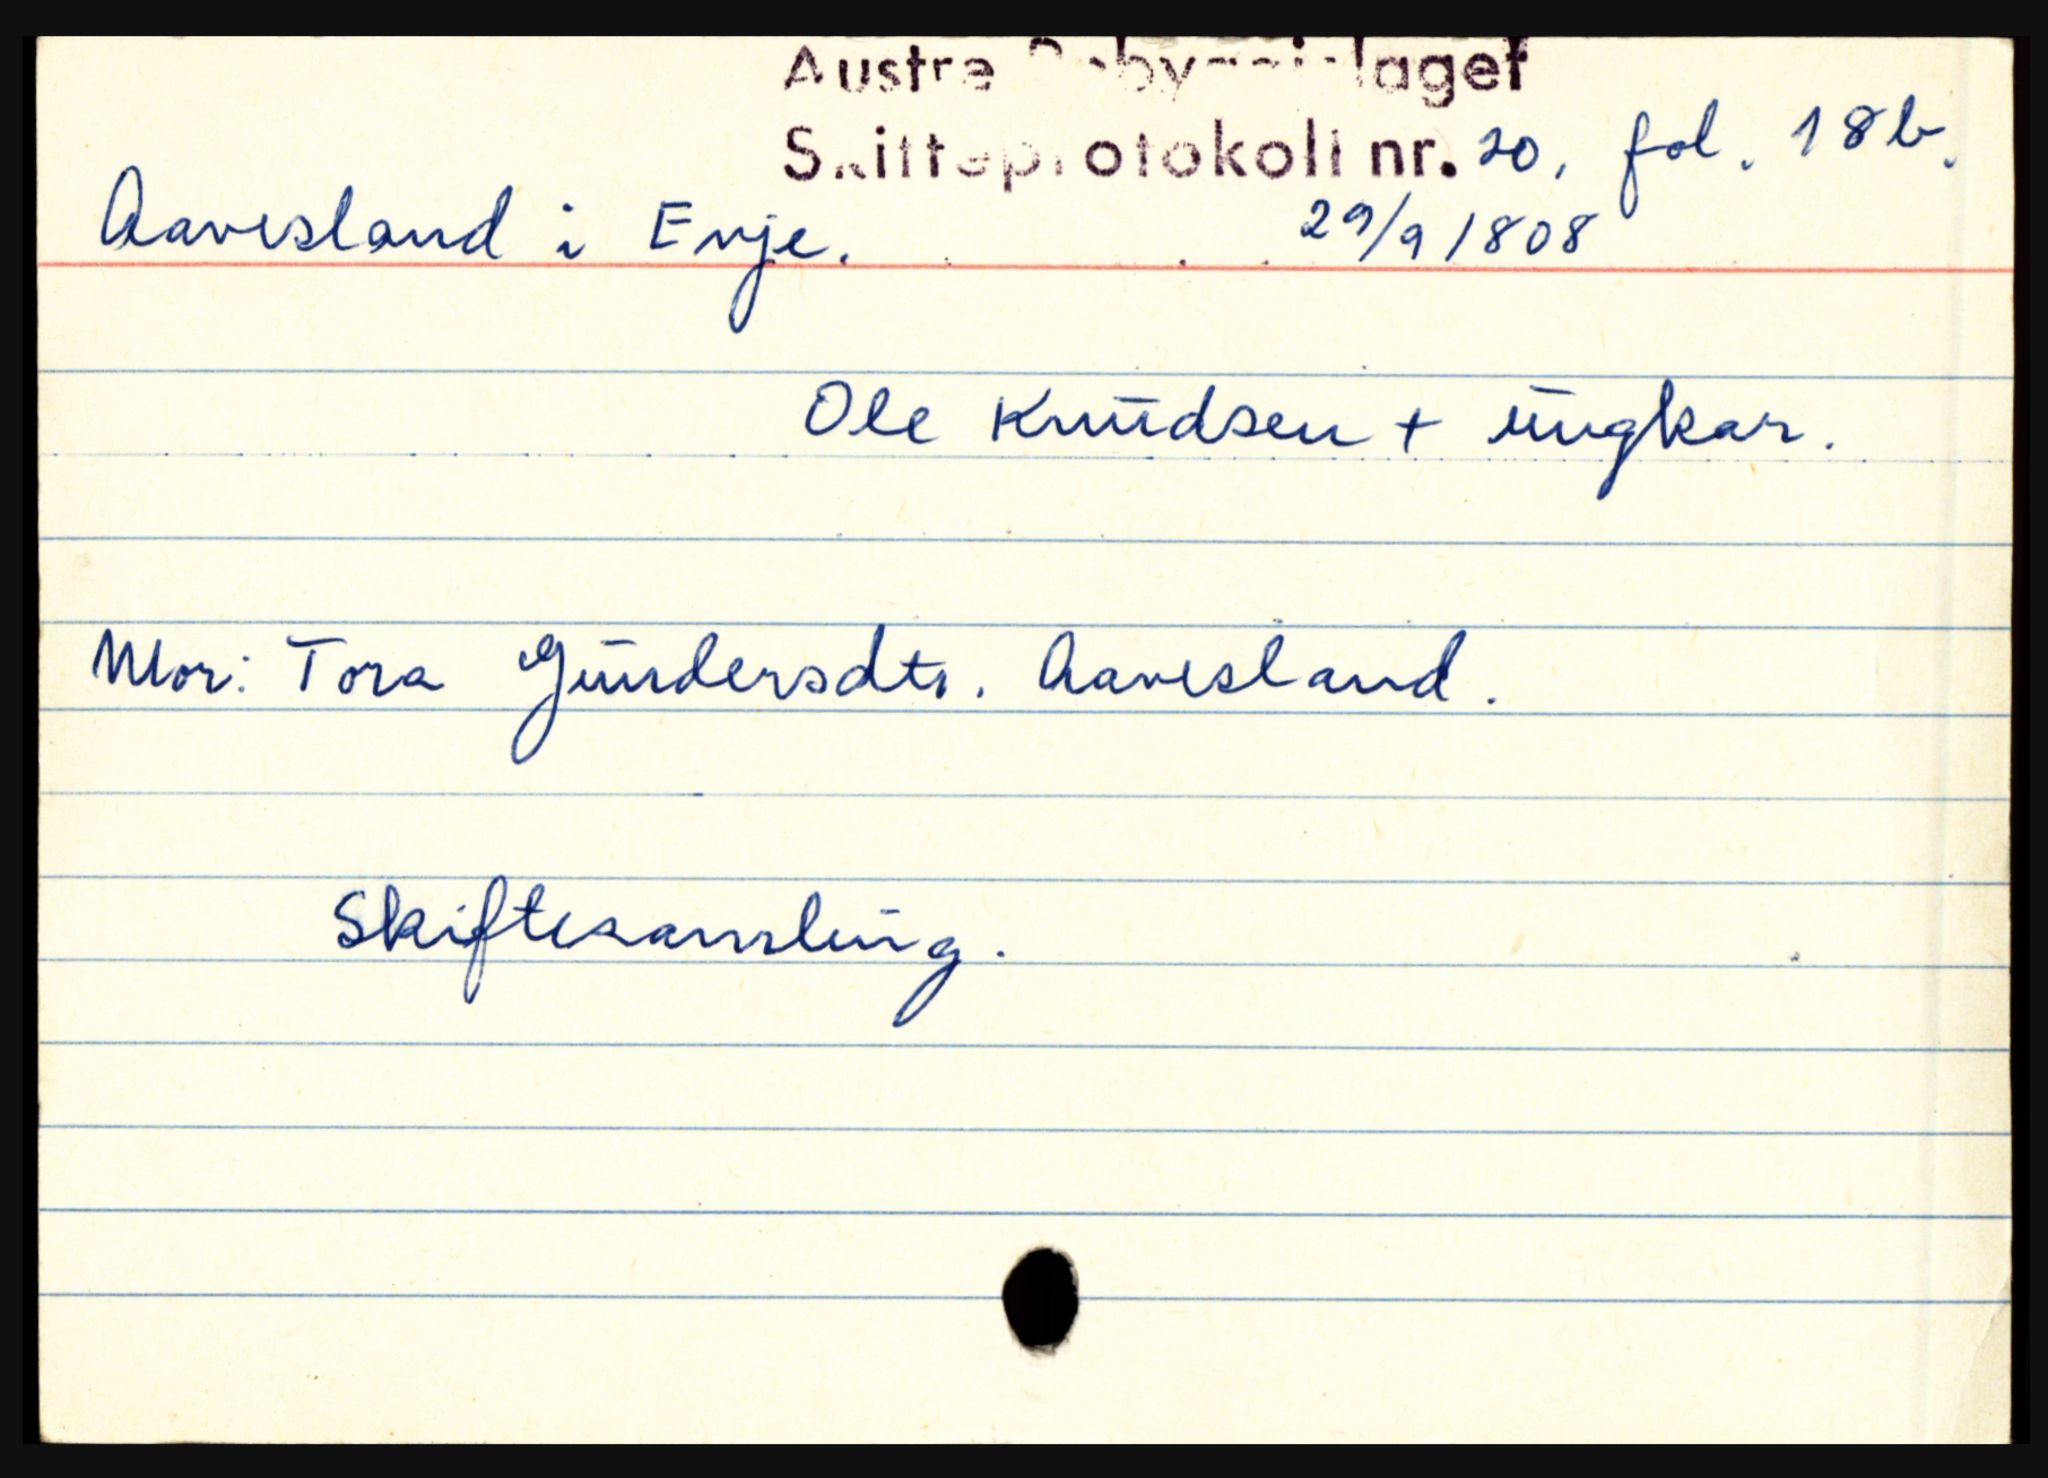 Austre Robyggjelaget
Skifteprotokoll nr. 20, fol. 18b.
Aavesland i Evje. 29/9 1808
Ole Knudsen + ungkar.
Mor: Tora Gundersdtr. Aavesland.
Skiftesamling.